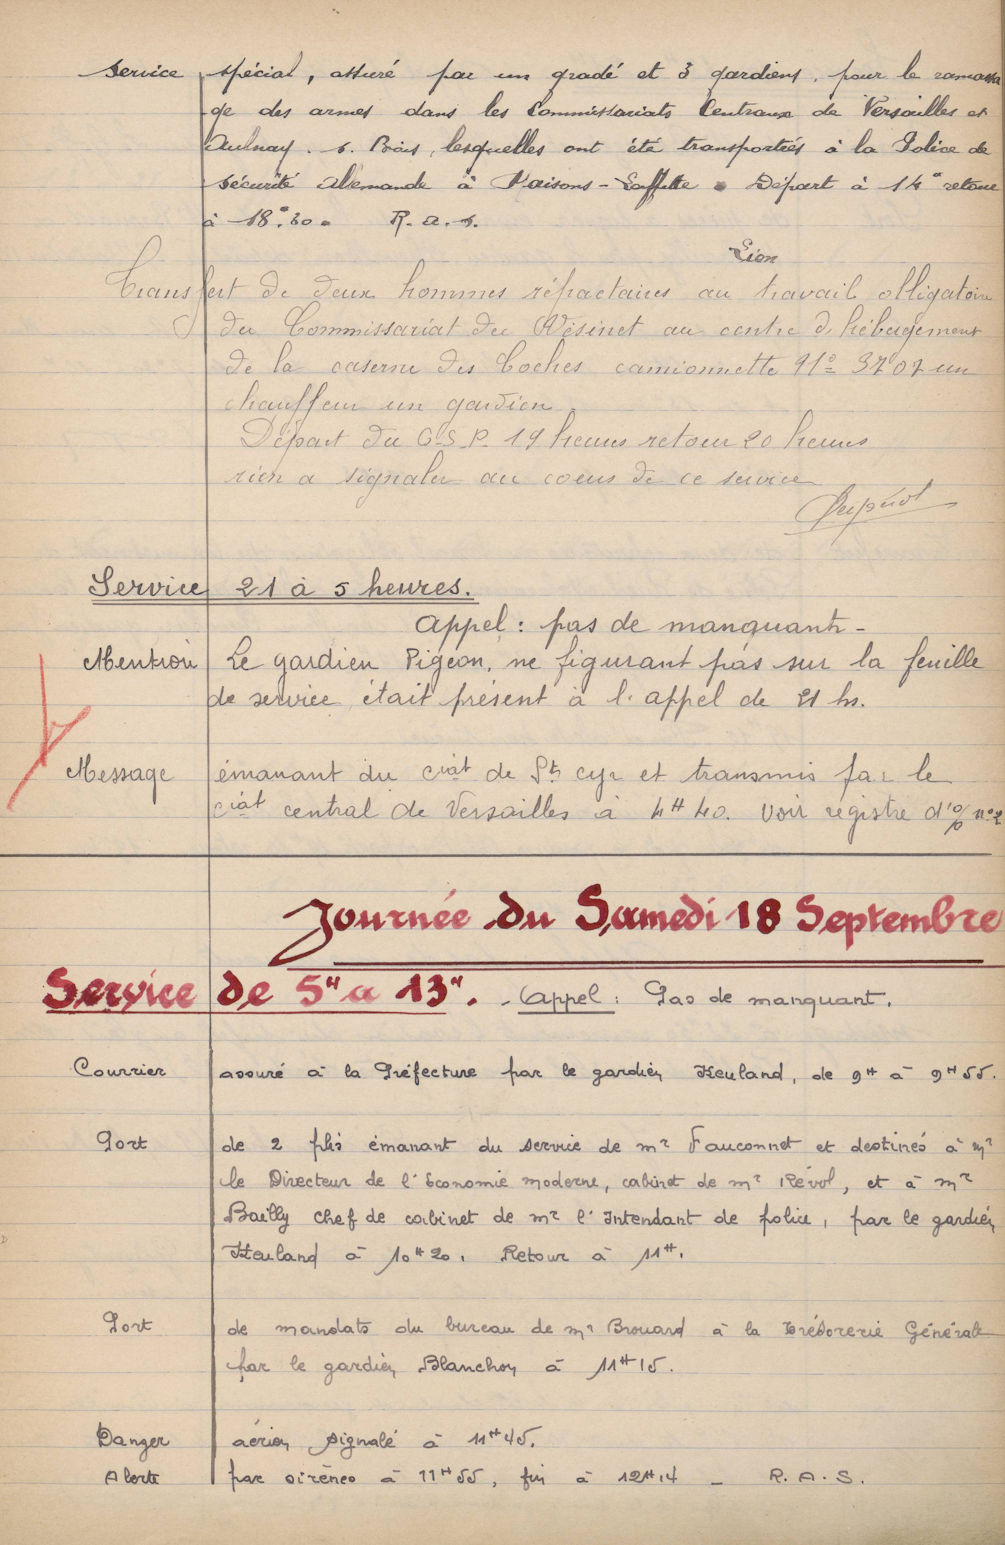 Service spécial, assuré par un gradé et 3 gardiens, pour le ramassa
ge des armes dans les Commissariats Centraux de Versailles et
Aulnay. s. Bois, lesquelles ont été transportées à la Police de
sécurité allemande à Maisons-Laffitte. Départ à 14° retour
à 18°.30. R. a. s.
Lion
Transfert de deux hommes réfractaires au travail obligatoire
du Commissariat du Vésinet au centre d'hébergement
de la caserne des Coches camionnette 91° 3707 un
chauffeur un gardien
Départ du G.S.P. 19 heures retour 20 heures
rien a signaler au cours de ce service
Service 21 à 5 heures.
Appel : pas de manquant -
Mention Le gardien Pigeon, ne figurant pas sur la feuille
de service, était présent à l'appel de 21 hs.
Message émanant du ciat de St cyr et transmis par le
ciat central de Versailles à 4H 40. Voir registre d'o/o n° 2
Journée du Samedi 18 Septembre
Service de 5H a 13H. - Appel : Pas de manquant.
Courrier assuré à la Préfecture par le gardien Heuland, de 9H à 9H55.
Port de 2 plis émanant du service de mr Fauconnet et destinés à mr
le Directeur de l'Economie moderne, cabinet de mr Révol, et à mr
Bailly chef de cabinet de mr l'Intendant de police, par le gardien
Heuland à 10H20. Retour à 11H.
Port de mandats du bureau de mr Brouard à la Trésorerie Générale
par le gardien Blanchon à 11H15.
Danger aérien signalé à 11H45.
Alerte par sirènes à 11H55, fin à 12H14 - R.A.S.